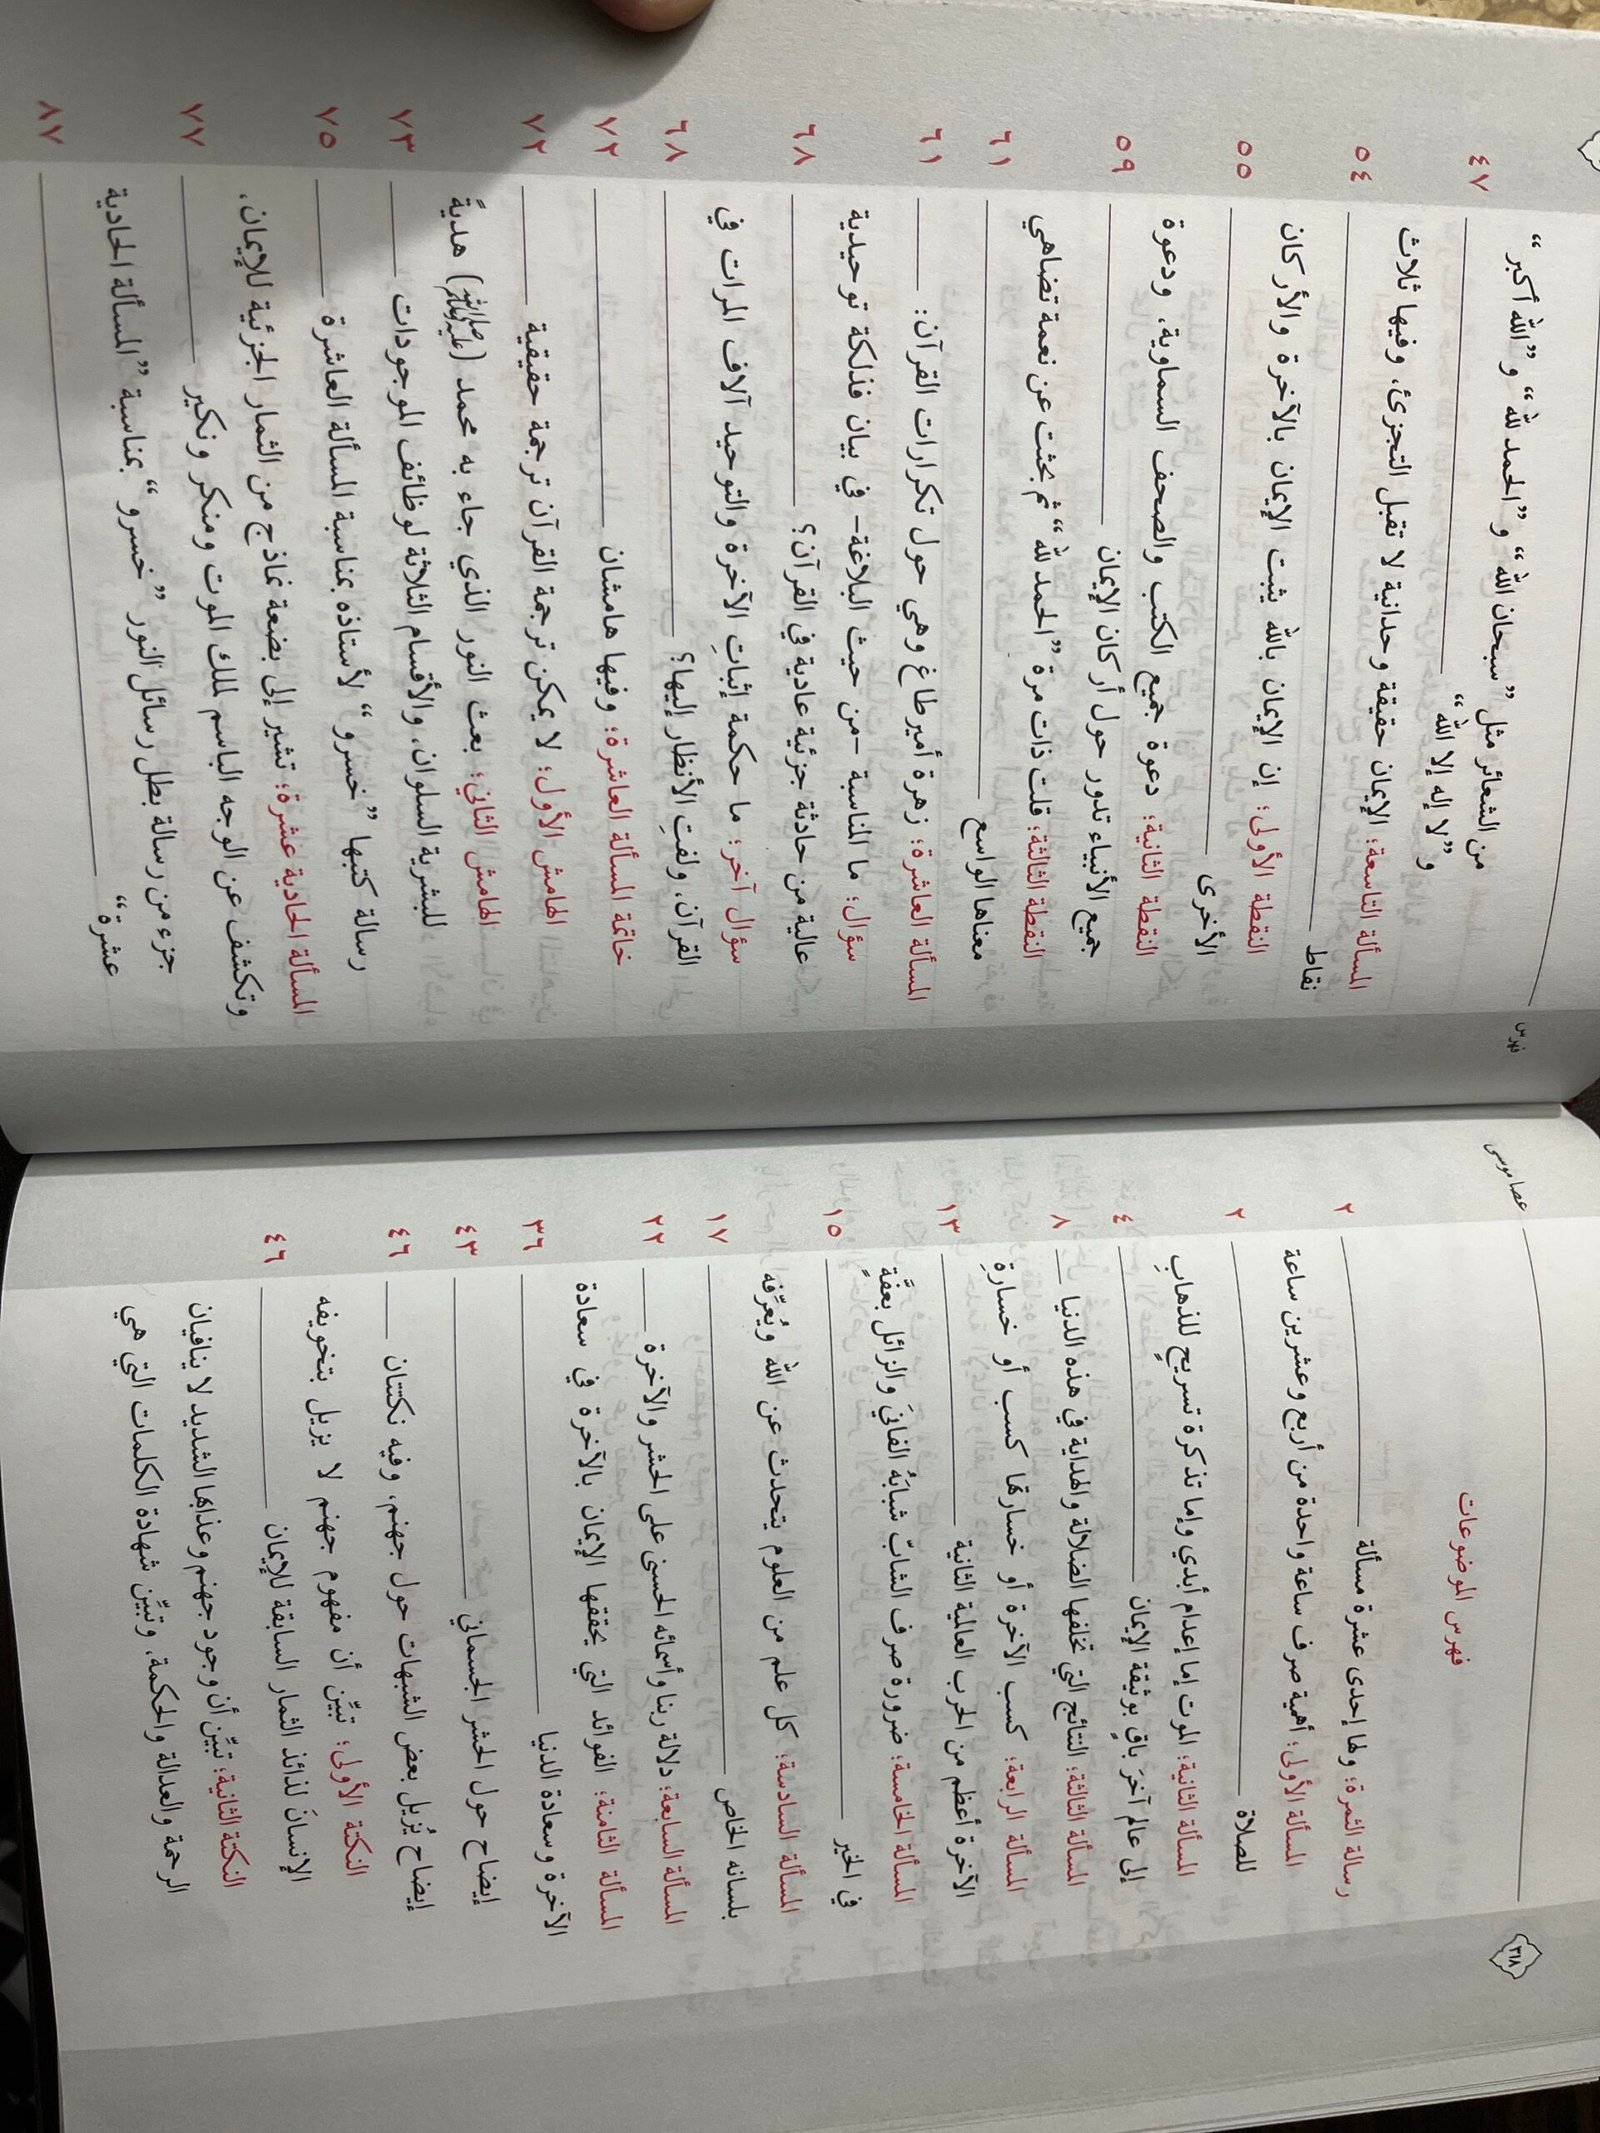 ٣١٨
عصا موسى
فهرس الموضوعات
رسالة الثمرة؛ ولها إحدى عشرة مسألة ٢
المسألة الأولى؛ أهمية صرف ساعة واحدة من أربع وعشرين ساعة
للصلاة ٢
المسألة الثانية؛ الموت إما إعدام أبدي وإما تذكرة تسريحٍ للذهابِ
إلى عالم آخرَ باقٍ بوثيقة الإيمان ٤
المسألة الثالثة؛ النتائج التي تخلفها الضلالة والهداية في هذه الدنيا ٨
المسألة الرابعة؛ كسب الآخرة أو خسارتها كسب أو خسارةِ
الآخرة أعظم من الحرب العالمية الثانية ١٣
المسألة الخامسة؛ ضرورة صرف الشابّ شبابَهُ الفانيَ والزائل بعفَّةٍ
في الخير ١٥
المسألة السادسة؛ كل علم من العلوم يتحدث عن الله ويُعرِّفه
بلسانه الخاص ١٧
المسألة السابعة؛ دلالة ربنا وأسمائه الحسنى على الحشر والآخرة ٢٢
المسألة الثامنة؛ الفوائد التي يحققها الإيمان بالآخرة في سعادة
الآخرة وسعادة الدنيا ٣٦
إيضاح حول الحشر الجسماني ٤٣
إيضاحٌ يُزيل بعض الشبهات حول جهنم، وفيه نكتتان ٤٦
النكتة الأولى؛ تبيِّن أن مفهوم جهنم لا يزيل بتخويفه
الإنسانَ لذائذ الثمار السابقة للإيمان ٤٦
النكتة الثانية؛ تبيِّن أن وجود جهنم وعذابها الشديد لا ينافيان
الرحمة والعدالة والحكمة، وتبيِّن شهادة الكلمات التي هي
فهرس
من الشعائر مثل ”سبحان الله“ و”الحمد لله“ و”الله أكبر“
و”لا إله إلا الله“ ٤٧
المسألة التاسعة؛ الإيمان حقيقة وحدانية لا تقبل التجزئ، وفيها ثلاث
نقاط ٥٤
النقطة الأولى؛ إن الإيمان بالله يثبت الإيمان بالآخرة والأركان
الأخرى ٥٥
النقطة الثانية؛ دعوة جميع الكتب والصحف السماوية، ودعوة
جميع الأنبياء تدور حول أركان الإيمان ٥٩
النقطة الثالثة؛ قلت ذات مرة ”الحمد لله“ ثم بحثت عن نعمة تضاهي
معناها الواسع ٦١
المسألة العاشرة؛ زهرة أميرطاغ وهي حول تكرارات القرآن: ٦١
سؤال؛ ما المناسبة -من حيث البلاغة- في بيان فذلكة توحيدية
عالية من حادثة جزئية عادية في القرآن؟ ٦٨
سؤال آخر؛ ما حكمة إثباتِ الآخرة والتوحيد آلاف المرات في
القرآن، ولفتِ الأنظار إليها؟ ٦٨
خاتمة المسألة العاشرة؛ وفيها هامشان ٧٢
الهامش الأول؛ لا يمكن ترجمة القرآن ترجمة حقيقية ٧٢
الهامش الثاني؛ بعث النور الذي جاء به محمد (صلى الله عليه وسلم) هديةً
للبشرية السلوان، والأقسام الثلاثة لوظائف الموجودات ٧٣
رسالة كتبها ”خسرو“ لأستاذه بمناسبة المسألة العاشرة ٧٥
المسألة الحادية عشرة؛ تشير إلى بضعة نماذج من الثمار الجزئية للإيمان،
وتكشف عن الوجه الباسم لملك الموت ومنكر ونكير ٧٧
جزء من رسالة بطل رسائل النور ”خسرو“ بمناسبة ”المسألة الحادية
عشرة“ ٨٧